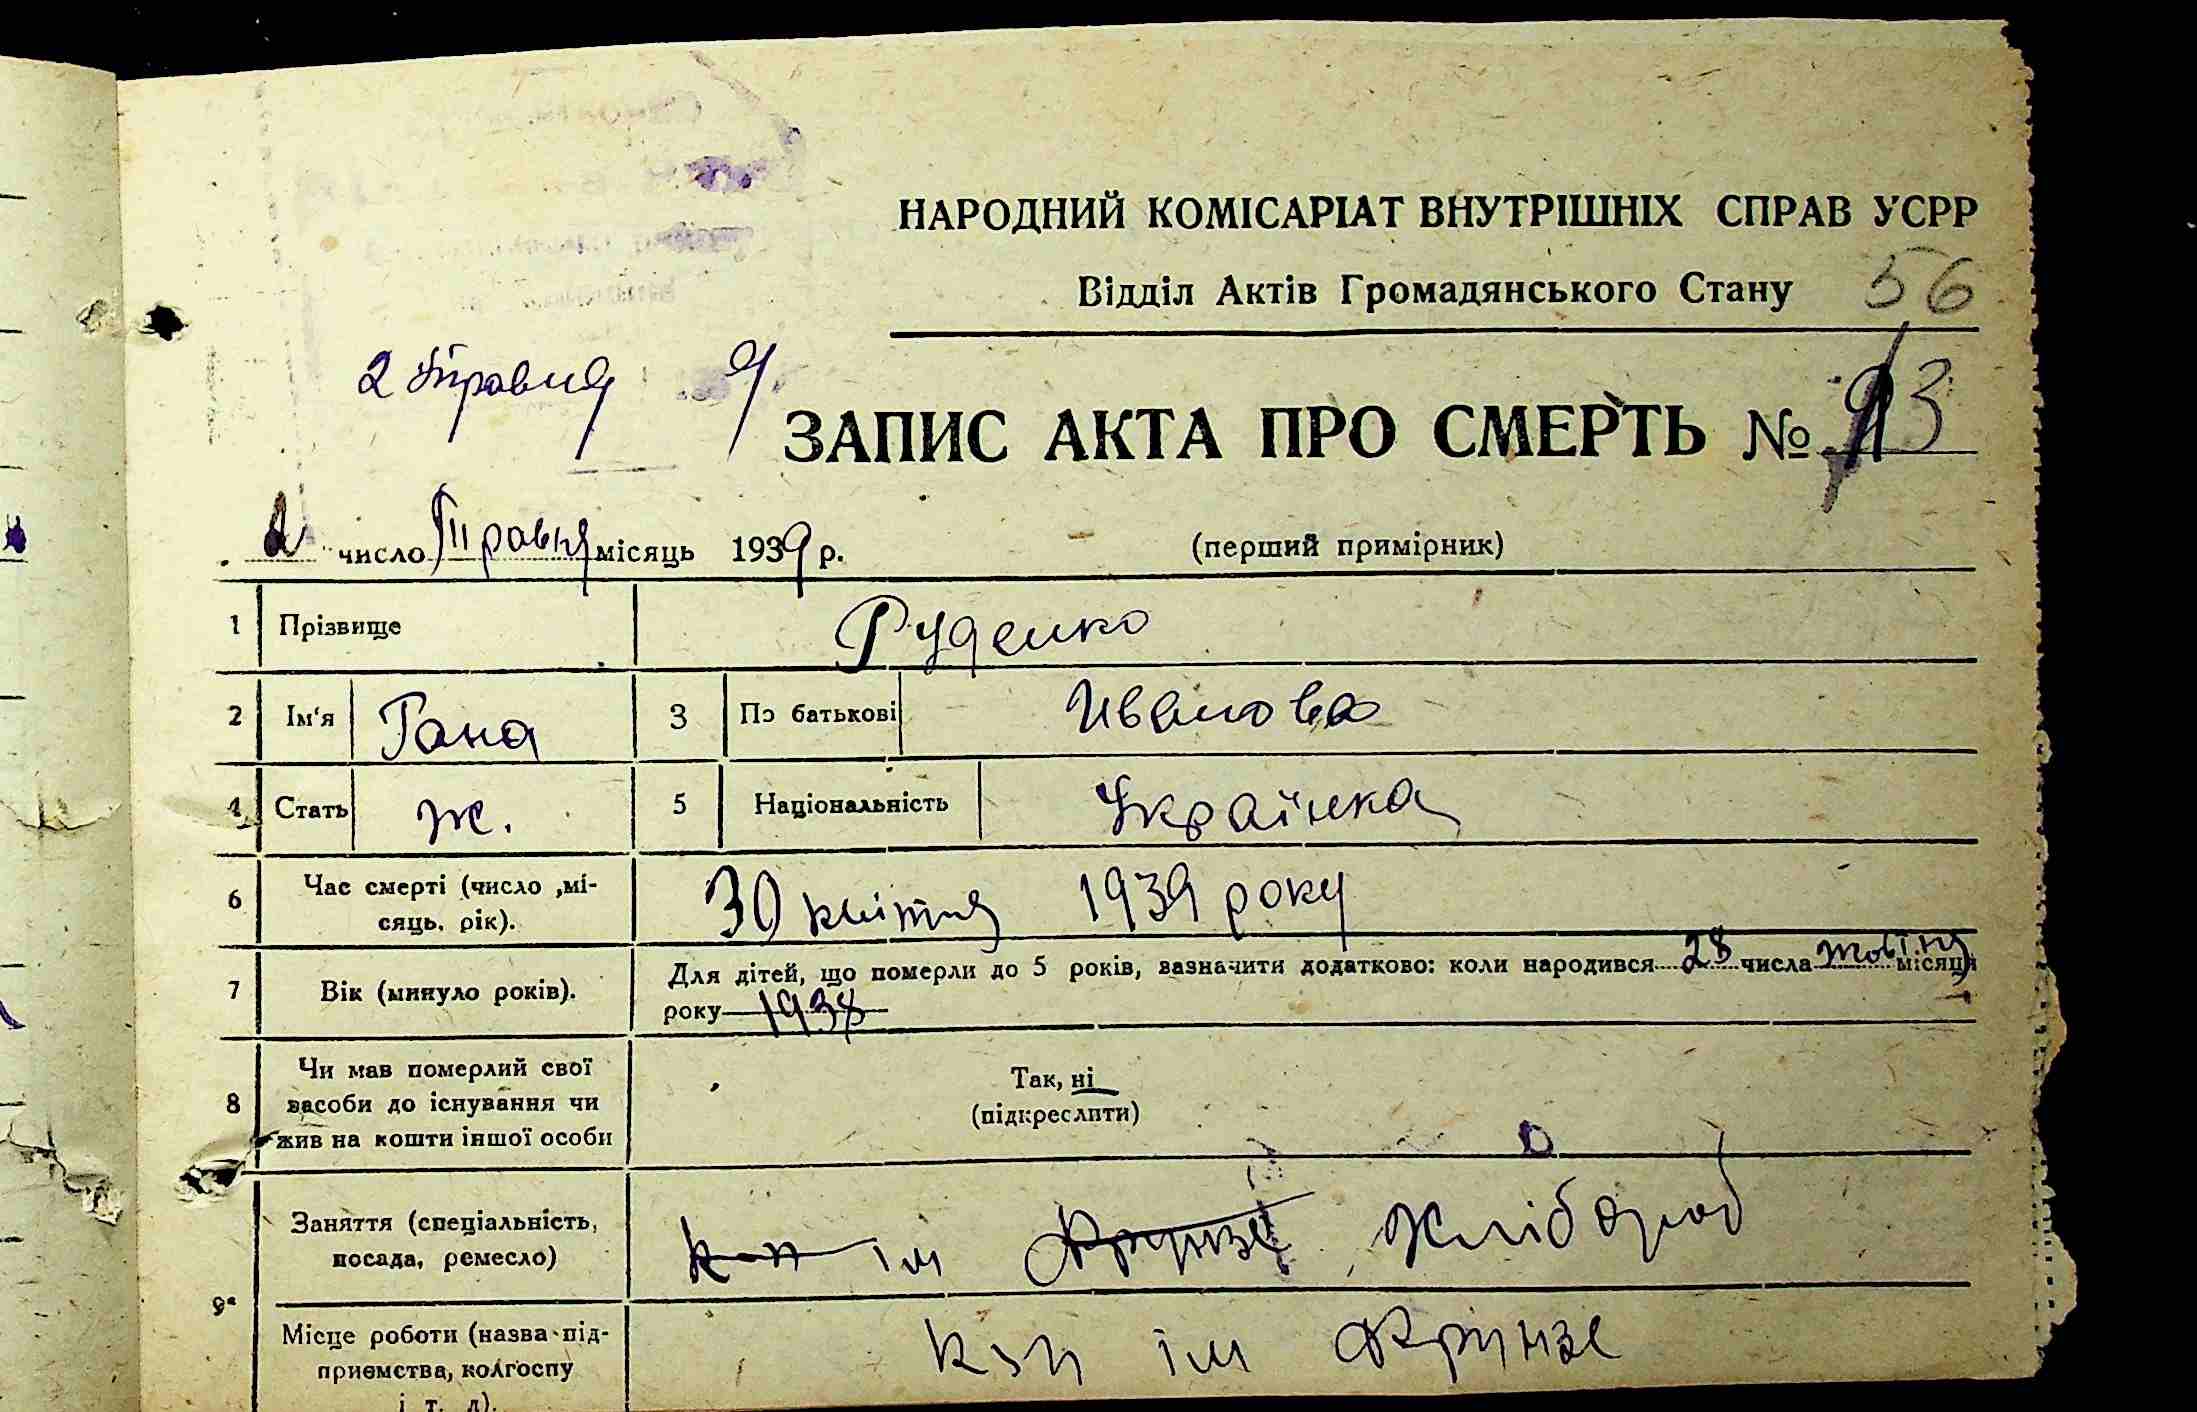 НАРОДНИЙ КОМІСАРІАТ ВНУТРІШНІХ СПРАВ УСРР
Відділ Актів Громадянського Стану 56
2 травня
ЗАПИС АКТА ПРО СМЕРТЬ № 13
2 число Травня місяць 1939 р. (перший примірник)
1 Прізвище Руденко
2 Ім'я Гана 3 По батькові Иванова
4 Стать ж. 5 Національність Українка
6 Час смерті (число ,мі-
сяць. рік). 30 квітня 1939 року
7 Вік (минуло років). Для дітей, що померли до 5 років, зазначити додатково: коли народився 28 числа жовтня місяця
року 1938
8 Чи мав померлий свої
засоби до існування чи
жив на кошти іншої особи
Так, ні
(підкреслити)
9а Заняття (спеціальність,
посада, ремесло)
к-п ім Фрунзе Хлібороб
Місце роботи (назва під-
приємства, колгоспу
і т. д).
ім Фрунзе